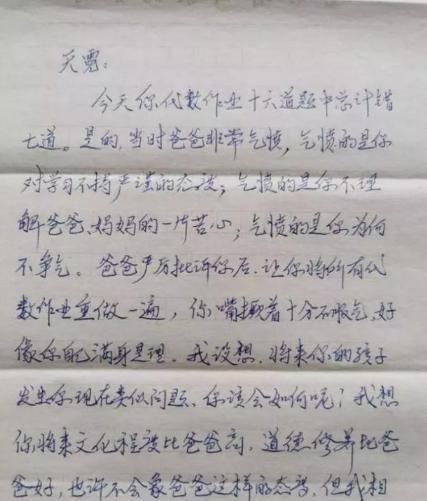 天霓：
今天你代数作业十六道题中总计错
七道。是的，当时爸爸非常气愤，气愤的是你
对学习不持严谨的态度；气愤的是你不理
解爸爸、妈妈的一片苦心；气愤的是你为何
不争气。爸爸严厉批评你后，让你将所有代
数作业重做一遍，你嘴撅着十分不服气，好
像你能满身是理。我设想，将来你的孩子
发生你现在类似问题、你该会如何呢？我想
你将来文化程度比爸爸高，道德修养比爸
爸好，也许不会象爸爸这样的态度，但我相